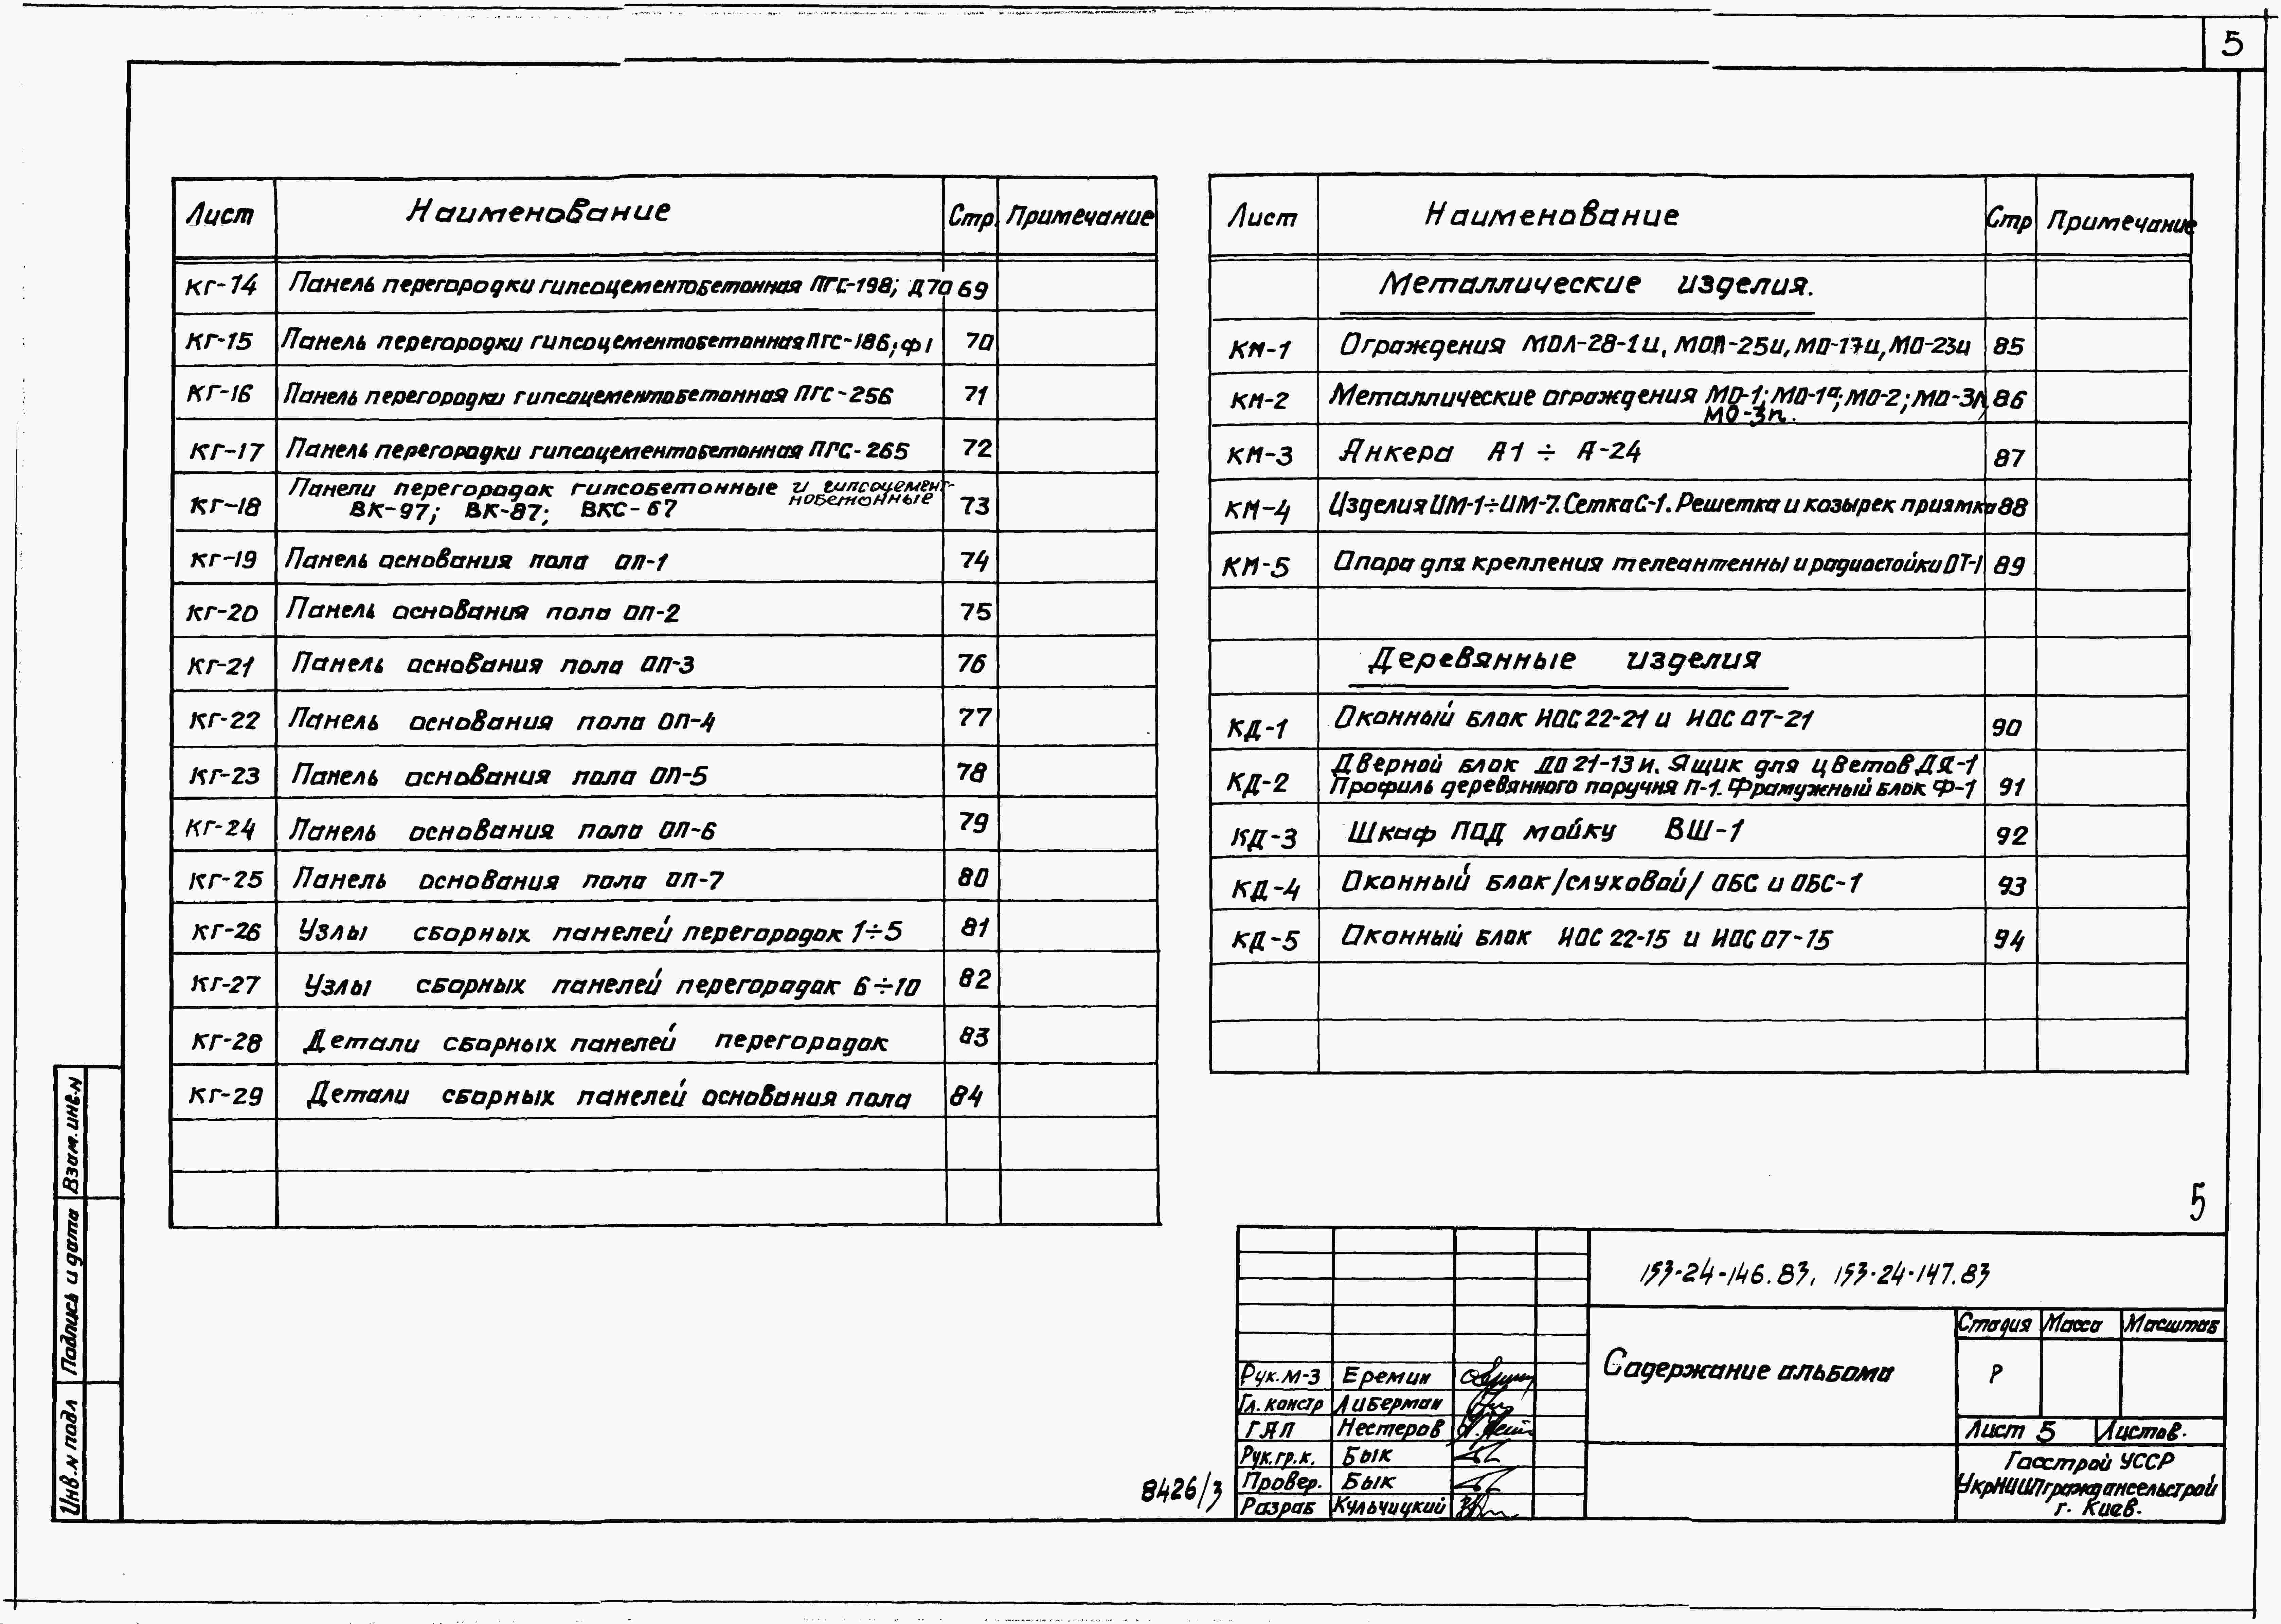 5
Лист Наименование Стр. Примечание
КГ-14 Панель перегородки гипсоцементобетонная ПГС-198; Д70 69
КГ-15 Панель перегородки гипсоцементобетонная ПГС-186; Ф1 70
КГ-16 Панель перегородки гипсоцементобетонная ПГС-256 71
КГ-17 Панель перегородки гипсоцементобетонная ПГС-265 72
КГ-18 Панели перегородок гипсобетонные и гипсоцемент-
нобетонные
ВК-97; ВК-87; ВКС-67 73
КГ-19 Панель основания пола ОП-1 74
КГ-20 Панель основания пола ОП-2 75
КГ-21 Панель основания пола ОП-3 76
КГ-22 Панель основания пола ОП-4 77
КГ-23 Панель основания пола ОП-5 78
КГ-24 Панель основания пола ОП-6 79
КГ-25 Панель основания пола ОП-7 80
КГ-26 Узлы сборных панелей перегородок 1÷5 81
КГ-27 Узлы сборных панелей перегородок 6÷10 82
КГ-28 Детали сборных панелей перегородок 83
КГ-29 Детали сборных панелей основания пола 84
Лист Наименование Стр Примечание
Металлические изделия.
КМ-1 Ограждения МОЛ-28-1и, МОП-25и, МО-17и, МО-23и 85
КМ-2 Металлические ограждения МО-1; МО-1а; МО-2; МО-3л, 86
МО-3п.
КМ-3 Анкера А1 ÷ А-24 87
КМ-4 Изделия ИМ-1÷ИМ-7. Сетка С-1. Решетка и козырек приямка 88
КМ-5 Опора для крепления телеантенны и радиостойки ОТ-1 89
Деревянные изделия
КД-1 Оконный блок НОС 22-21 и НОС 07-21 90
КД-2 Дверной блок ДО 21-13и. Ящик для цветов ДЯ-1
Профиль деревянного поручня П-1. Фрамужный блок Ф-1 91
КД-3 Шкаф под мойку ВШ-1 92
КД-4 Оконный блок /слуховой/ ОБС и ОБС-1 93
КД-5 Оконный блок НОС 22-15 и НОС 07-15 94
5
153-24-146.83, 153-24-147.83
Содержание альбома
Стадия Масса Масштаб
Р
Лист 5 Листов.
Госстрой УССР
УкрНИИПграждансельстрой
г. Киев.
Рук. М-3 Еремин
Гл. констр Либерман
ГАП Нестеров
Рук. гр. к. Бык
Провер. Бык
Разраб Кульчицкий
8426/3
Взам. инв. N
Подпись и дата
Инв. N подл